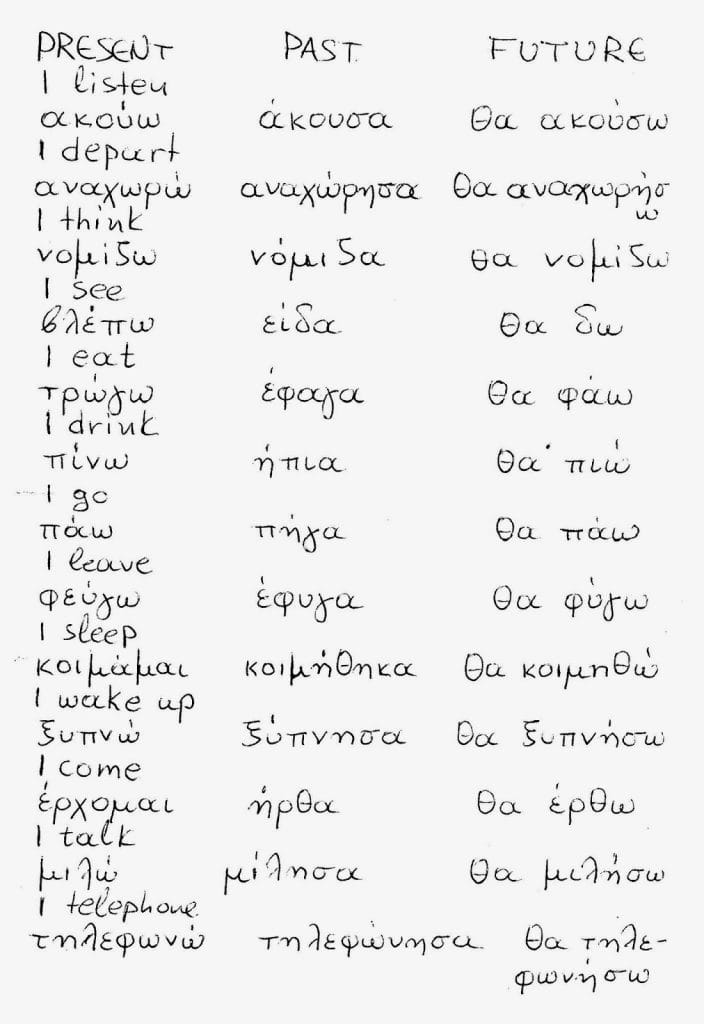 PRESENT PAST FUTURE
I listen
ακούω άκουσα θα ακούσω
I depart
αναχωρώ αναχώρησα θα αναχωρήσ
ω
I think
νομίζω νόμιζα θα νομίζω
I see
βλέπω είδα θα δω
I eat
τρώγω έφαγα θα φάω
I drink
πίνω ήπια θα πιώ
I go
πάω πήγα θα πάω
I leave
φεύγω έφυγα θα φύγω
I sleep
κοιμάμαι κοιμήθηκα θα κοιμηθώ
I wake up
ξυπνώ ξύπνησα θα ξυπνήσω
I come
έρχομαι ήρθα θα έρθω
I talk
μιλώ μίλησα θα μιλήσω
I telephone
τηλεφωνώ τηλεφώνησα θα τηλε-
φωνήσω